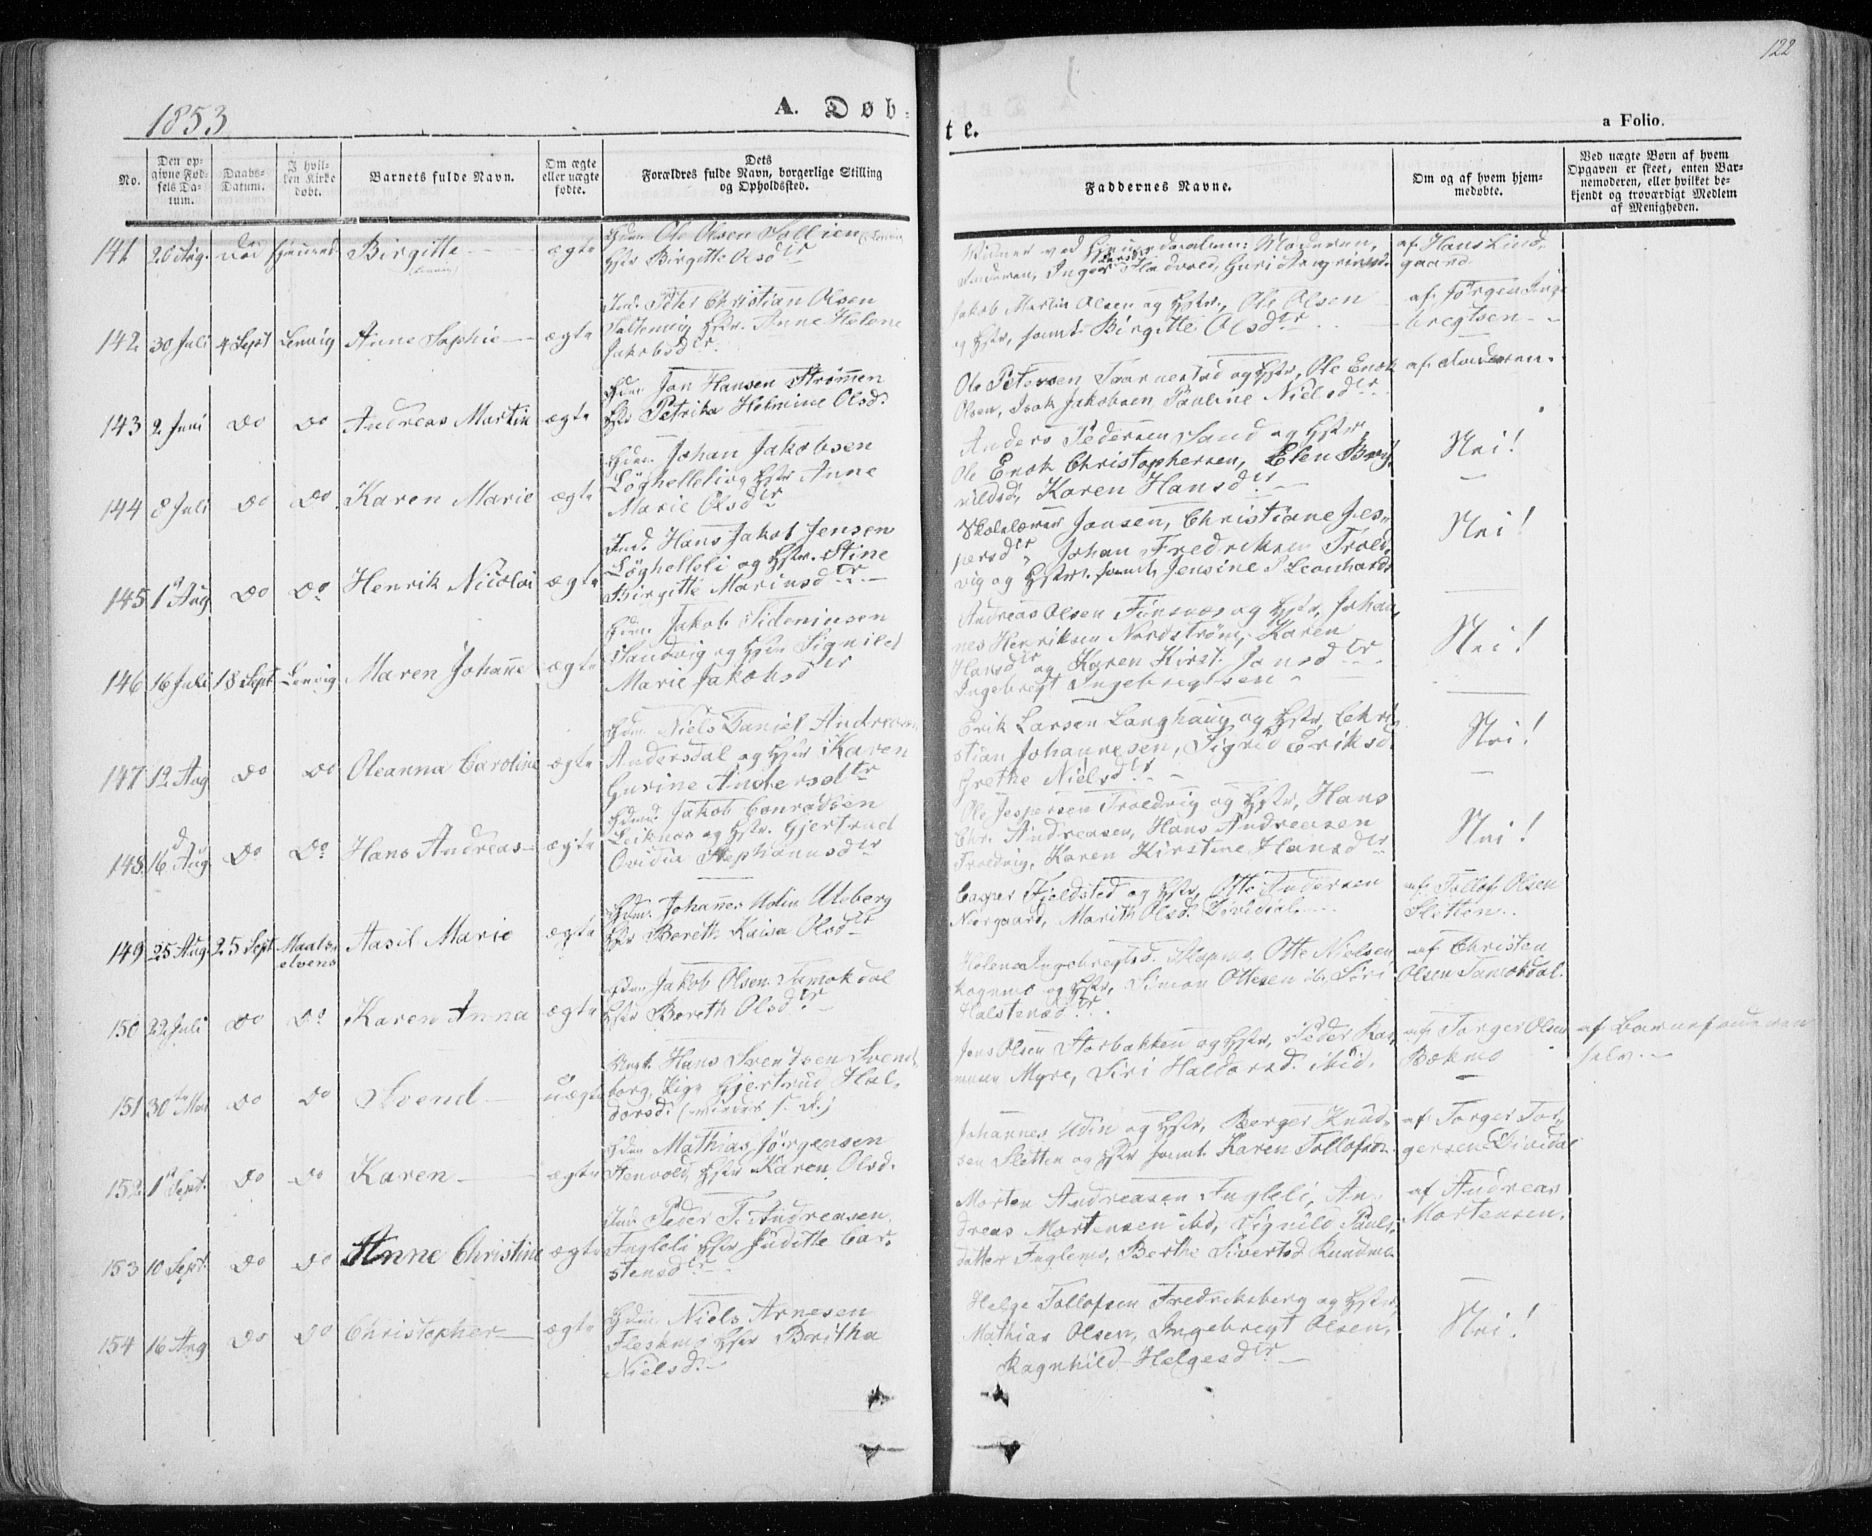 122
1853
A. Døb-
te.
a Folio.
No.
Den op-
givne Fød-
sels Da-
tum.
Daabs-
Datum.
I hvil-
ken Kirke
døbt.
Barnets fulde Navn.
Om ægte
eller uægte
fødte.
Dets
Forældres fulde Navn, borgerlige Stilling
og Opholdssted.
Faddernes Navne.
Om og af hvem hjem-
medøbte.
Ved uægte Børn af hvem
Opgaven er skeet, enten Bar-
nemoderen, eller hvilket be-
kjendt og troværdigt Medlem
af Menigheden.
141 20 Aug. Birgitte ægte
Ole Olsen
Birgitte Olsdtr
af Hans Lind-
gaard
142 30 Juli 4 Sept Lenvig Anne Sophie ægte
Ind. Peter Christian Olsen
Anne Helene
Jakobsdtr
Jakob Martin Olsen og Hstr, Ole Olsen
og Hstr, samt Birgitte Olsdtr
af Jørgen Inge
bregtsen
143 2 Juni Do Do Andreas Martin ægte
Gdm. Jon Hansen Strømen
Hstr Petrika Helmine Olsd.
Ole Petersen og Hstr, Ole Enok
Olsen, Isak Jakobsen, Pauline Nielsdtr
af Moderen.
144 8 Juli Do Do Karen Marie ægte
Gdm. Johan Jakobsen
Løghelleli og Hstr Anne
Marie Olsdtr
Anders Pedersen Sand og Hstr,
Ole Enok Christophersen, Elen
Karen Hansdtr
Nei!
145 1 Aug Do Do Henrik Nicolai ægte
Ind. Hans Jakob Jensen
Løghelleli og Hstr. Stine
Birgitte Marinsdtr
Skolelærer Jensen, Christiane Jes-
persdtr, Johan Fredriksen Trold-
vig og Hstr. samt Jensine P Leonhards
Nei!
146 16 Juli 18 Sept Lenvig Maren Johanne ægte
Gdm. Jakob Pideninsen
Sandvig og Hstr Signild
Marie Jakobsdtr
Andreas Olsen Finsnæs og Hstr, Johan-
nes Henriksen Nordstrøm, Karen
Hansdtr og Karen Kirst. Jonsdtr
Ingebregt Ingebregtsen
Nei!
147 12 Aug Do Do Oleanna Caroline ægte
Gdm. Niels Daniel Andreas
Andersdal og Hstr Karen
Gurine Andersdtr
Erik Larsen Langhaug og Hstr, Chri-
stian Johannesen, Sigrid Eriksd.
Grethe Nielsdtr
Nei!
148 16 Aug Do Do Hans Andreas ægte
Gdm. Jakob Conradsen
Leiknes og Hstr. Gjertrud
Ovidia Stephanusdtr
Ole Jespersen Troldvig og Hstr, Hans
Chr. Andreasen, Hans Andreasen
Troldvig, Karen Kirstine Hansdtr
Nei!
149 25 Aug 25 Sept Maals-
elvens Aasil Marie ægte
Gdm. Johannes Udin Uleberg
Hstr Bereth Kaisa Olsdtr
Casper Fjeldsted og Hstr, Otte Andersen
Norgaard, Marith Olsd. Dividal
af Tollof Olsen
Sletten
150 22 Juli Do Do Karen Anna ægte
Gdm Jakob Olsen Tamokdal
Hstr Bereth Olsdtr
Helena Ingebregtsd. Skapmo, Otte Nielsen
Kognmo og Hstr, Simon Ottesen ib. Siri
Halstensdtr
af Christen
Olsen Tamokdal
151 30te Mai Do Do Svend uægte
Ungk. Hans Svendsen Svend-
borg, Pige Gjertrud Hal-
dorsd.
Jens Olsen Storbakken og Hstr, Peder
Myre, Siri Haldorsd. ibid,
af Torger Olsen
Bækmo
af Barnefaderen
selv.
152 1 Sept. Do Do Karen ægte
Gdm Mathias Jørgensen
Stenvold, Hstr Karen Olsd.
Johannes Udin og Hstr, Berger Knud-
sen Sletten og Hstr samt Karen Tollofsen
af Torger Tor-
gersen Dividal
153 10 Sept. Do Do Anne Christine ægte
Ind. Peder T. Andreasen
Fugleli Hstr Juditte Car-
stensdtr
Morten Andreasen Fugleli, An-
dreas Mortensen ibd, Signild Pauls-
datter Fuglemo, Berthe Sivertsd. Rundmo
af Andreas
Mortensen.
154 16 Aug Do Do Christopher ægte
Gdm. Niels Arnesen
Fleskmo Hstr Beritha
Nielsd.
Helge Tollofsen Fredriksberg og Hstr,
Mathias Olsen, Ingebregt Olsen,
Ragnhild Helgesdtr
Nei!